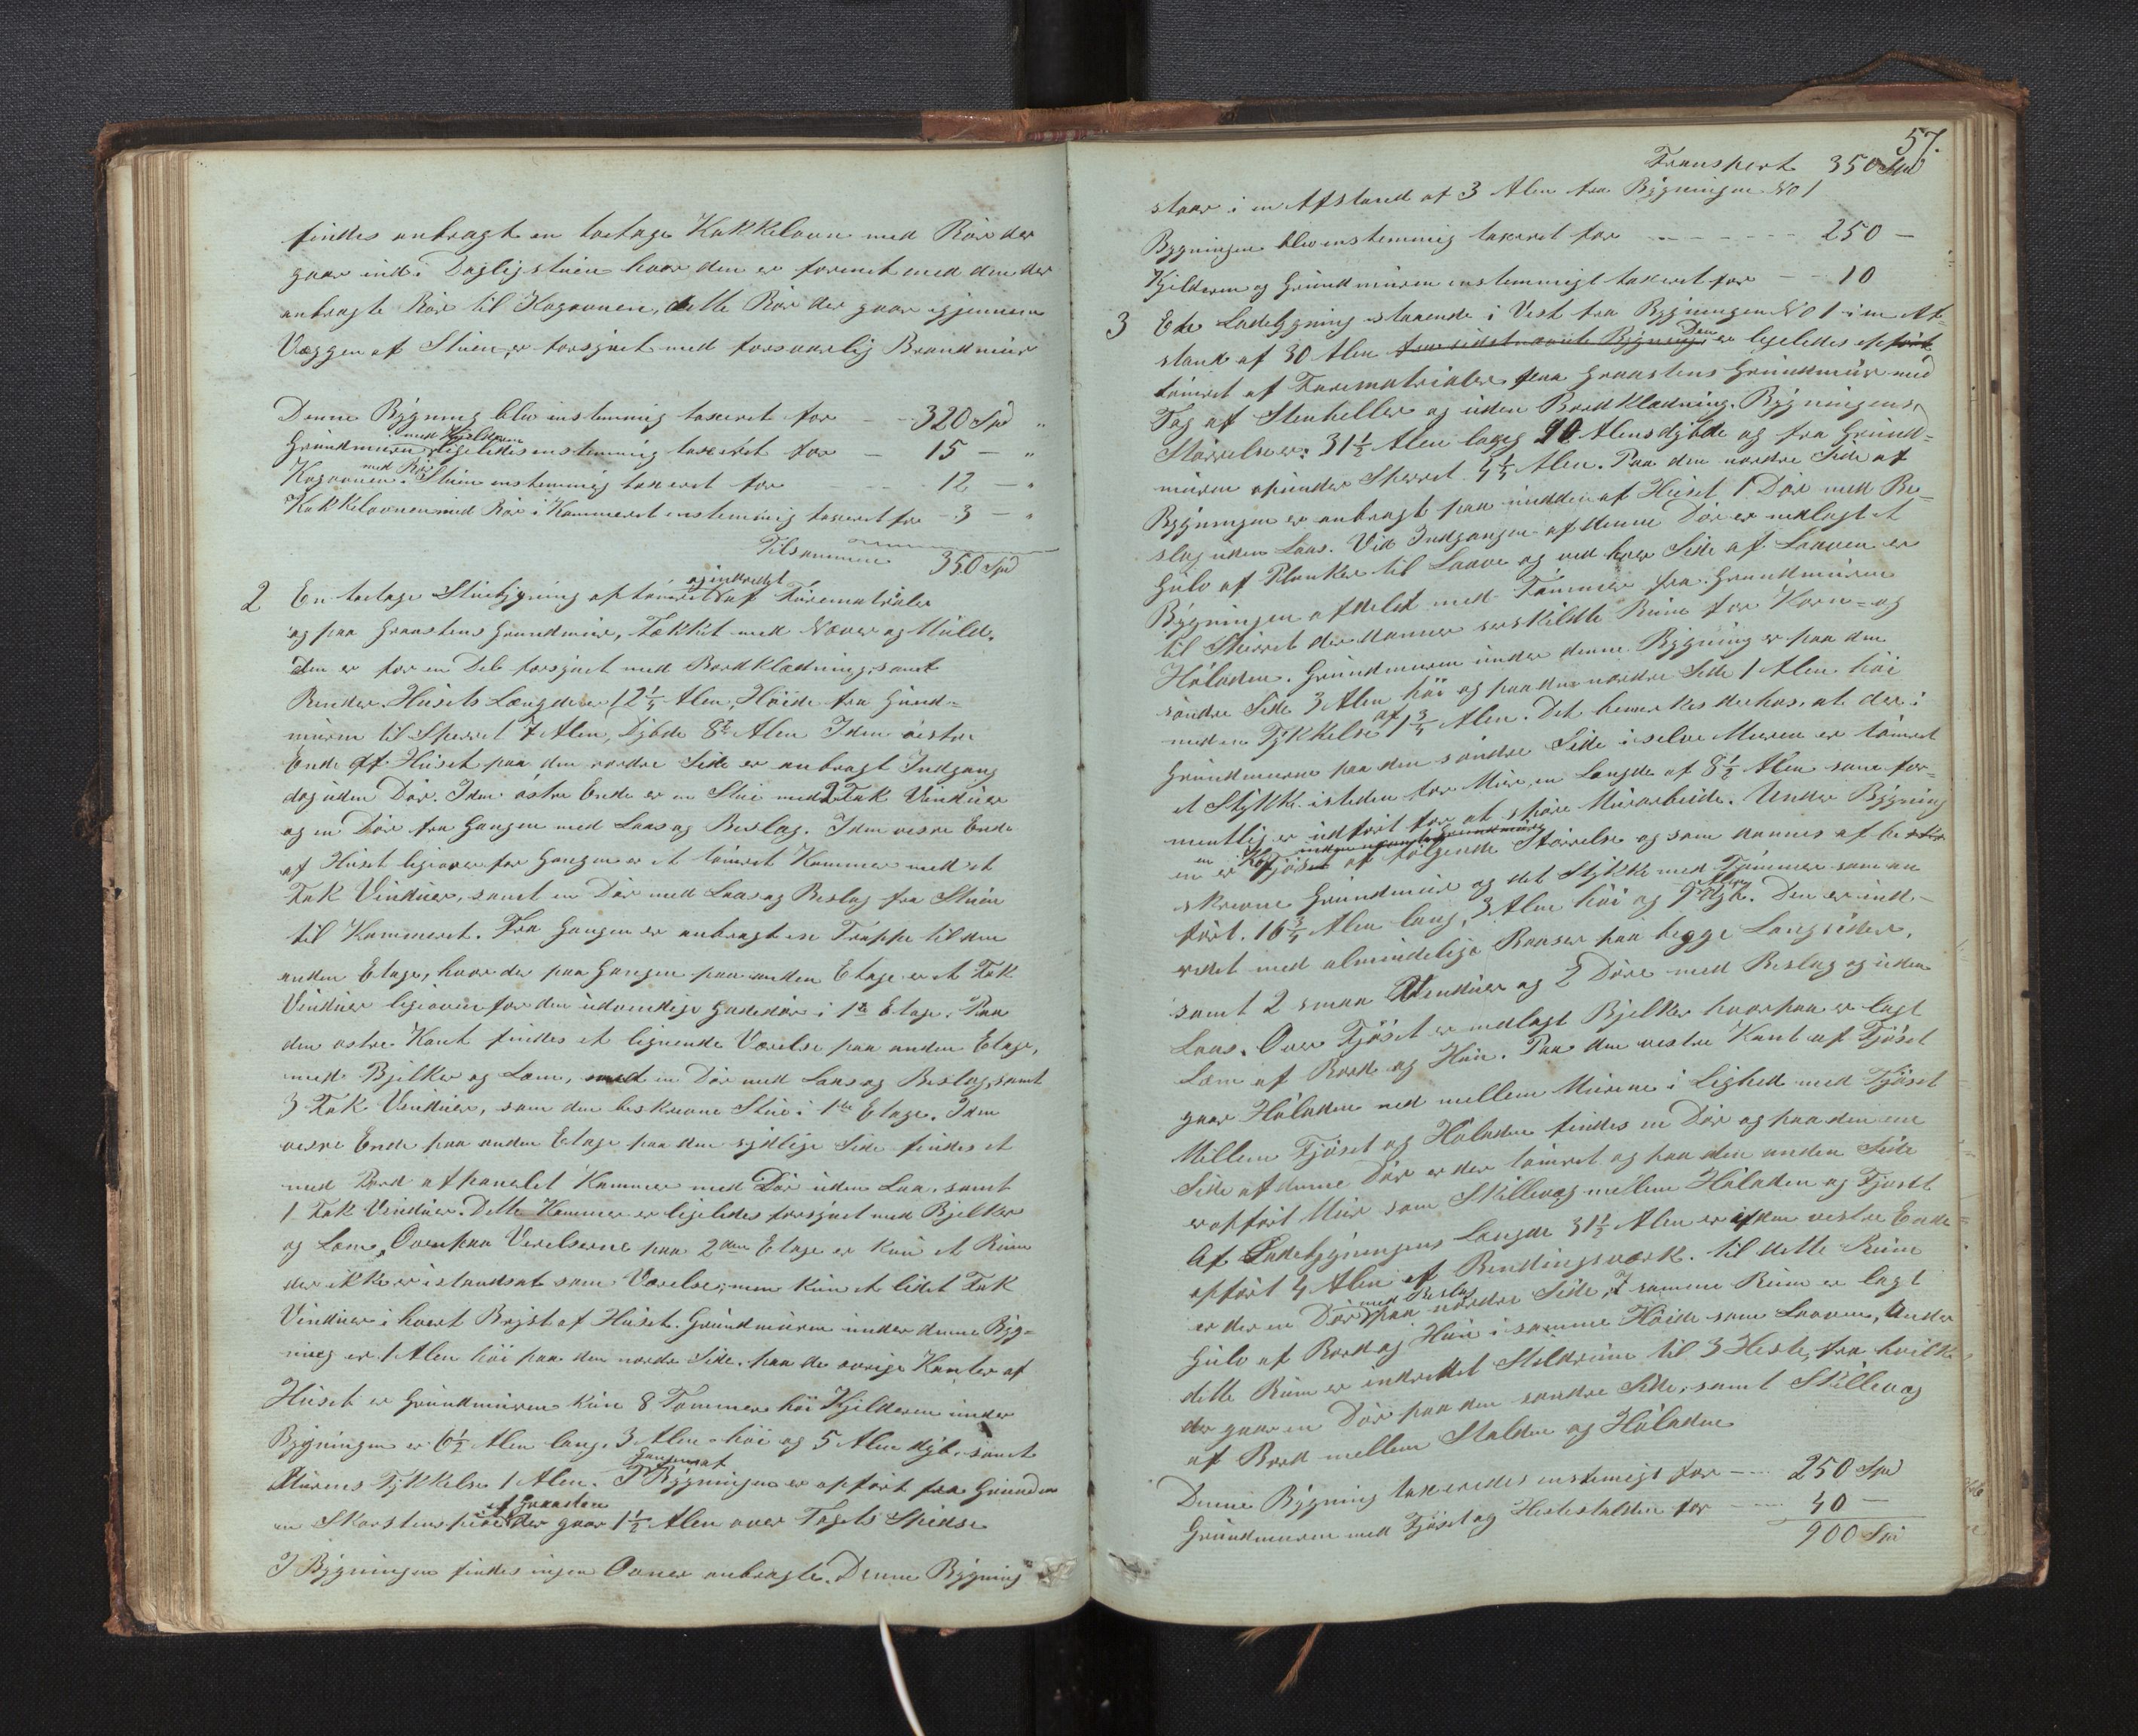 findes anbragt en toetage Kakkelovn med Rör der
gaar ind i Dagligstuen hvor den er forenet med den der
anbragte Rör til Kogovnen, dette Rör der gaar igjennem
Væggen af Stuen er forsynet med forsvarlig Brandmür
Denne Bÿgning blev enstemmig taxeret for - 320 Spd "
med Kjelderen
Grundmuren ligeledes enstemmig taxeret for - 15 - "
med Rör
Kogovnen i Stuen enstemmig taxeret for - 12 - "
Kakkelovnen med Rör i Kammeret enstemmig taxeret for - 3 - "
Tilsammen 350 Spd
og indredet
2 En toetages Stuebygning optömret af Furematrialer
og paa Graastens Grundmur, Tækket med Næver og Muld.
Den er for en Deel forsynet med Bordklædning, samt
Render. Husets Længde er 12 1/4 Alen, Höide fra Grund-
muren til Sperret 7 Alen, Dÿbde 8 3/4 Alen I den östre
Ende af Huset paa den nordre Side er anbragt Indgang
dog uden Dör. I den östre Ende er en Stue med 3 Fak Vinduer
og en Dör fra Gangen med Laas og Beslag. I den vestre Ende
af Huset ligeoverfor Gangen er et tömret Kammer med et
Fak Vinduer, samt en Dör med Laas og Beslag fra Stuen
til Kammeret. Fra Gangen er anbragt en Trappe til den
anden Etage, hvor der paa Gangen paa anden Etage er et Fak
Vinduer ligeoverfor den udvendige Gadedör i 1ste Etage. Paa
den östre Kant findes et lignende Værelse paa anden Etage,
med Bjelker og Lem, med en Dör med Laas og Beslag, samt
3 Fak Vinduer, som den beskrevne Stue i 1ste Etage. I den
vestre Ende paa anden Etage paa den sydlige Side findes et
med Bord afpanelet Kammer med Dör uden Laa, samt
1 Fak Vinduer. Dette Kammer er ligeledes forsynet med Bjelker
og Lem. Ovenpaa Værelserne paa 2den Etage er kun et Rum
der ikke er istandsat som Værelse, men kun et lidet Fak
Vinduer i hvert Brÿst af Huset. Grundmuren under denne Bÿg-
ning er 1 Alen höi paa den nordre Side, paa de övrige Kanter af
Huset er Grundmuren kun 8 Tommer höi Kjelderen under
Bÿgningen er 6 1/2 Alen lang, 3 Alen höi og 5 Alen dÿb, samt
Murens Tÿkkelse 1 Alen. I Bÿgningen er opfört fra Grunden
en Skorstenspibe af Graasten der gaar 1 1/2 Alen over Tagets Spidse
I Bÿgningen findes ingen Ovner anbragte. Denne Bÿgning
57.
Transport 350 Spd
staar i en Afstand af 3 Alen fra Bÿgningen No 1
Bÿgningen blev enstemmig taxeret for - 250 -
Kjelderen og Grundmuren enstemmigt taxeret for - 10
3 Ede Ladebÿgning staaende i Vest fra Bÿgningen No 1 i en Af-
stand af 30 Alen fra sidstnævnte Bÿgning. Den er ligeledes opfört
tömret af Furematrialer paa Graastens Grundmür med
Tag af Stenheller og uden Bordklædning. Bÿgningens
Störrelse er: 31 1/2 Alen lang 10 Alens dÿbde og fra Grund-
muren op under Sperret 4 1/4 Alen. Paa den nordre Side af
Bÿgningen er anbragt paa midden af Huset 1 Dör med Be-
slag uden Laas. Ved Indgangen af denne Dör er nedlagt et
Gulv af Planker til Laave og ved hver Side af Laaven er
Bÿgningen afdelet med Tömmer fra Grundmuren
til Sperret der danner særskildte Rum for Korn- og
Höladen. Grundmuren under denne Bÿgning er paa den
söndre Side 3 Alen höi og paa den nordre Side 1 Alen höi
med en Tÿkkelse af 1 3/4 Alen. Det bemærkes derhos, at der i
Grundmuren paa den söndre Side i selve Muren er tömret
et Stÿkke isteden for Mür, en Længde af 8 1/2 Alen som for-
mentlig er udfört for at spare Mürarbeide. Under Bÿgning
en er Kofjöset af fölgende Störrelse og som dannes af be
skrevne Grundmür og det Stÿkke med Tömmer som an
fört. 16 3/4 Alen lang, 3 Alen höi og 9 Alen dÿb. Den er ind-
redet med almindelige Baaser paa begge Langsider,
samt 2 smaa Vinduer og 2 Döre med Beslag og uden
Laas. Over Fjöset er nedlagt Bjelker hvorpaa er lagt
Lem af Bord og Hun. Paa den vestre Kant af Fjöset
gaar Höladen ned mellem Murene i Lighed med Fjöset
Mellem Fjöset og Höladen findes en Dör og paa den ene
Side af denne Dör er der tömret og paa den anden Side
er opfört Mür som Skillevæg mellem Höladen og Fjöset
Af Ladebÿgningens Længde 31 1/2 Alen er af den vestre Ende
opfört 4 Alen af Bendingsværk. til dette Rum
er der en Dör med Beslag paa nordre Side, I samme Rum er lagt
Gulv af Bord og Hun i samme Höide som Laaven, Under
dette Rum er indredet Staldrum til 3 Heste, fra hvilke
der gaar en Dör paa den söndre Side, samt Skillevæg
af Bord mellem Stalden og Höladen
Denne Bÿgning taxeredes enstemigt for - 250 Spd
Grundmuren med Fjöset og Hestestalden for - 40 -
900 Spd